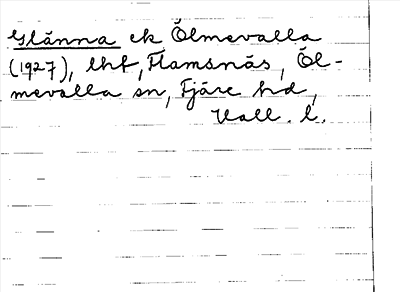 Glänna ek Ölmevalla
(1927), lht, Hamsnäs, Öl-
mevalla sn, Fjäre hd,
Hall. l.